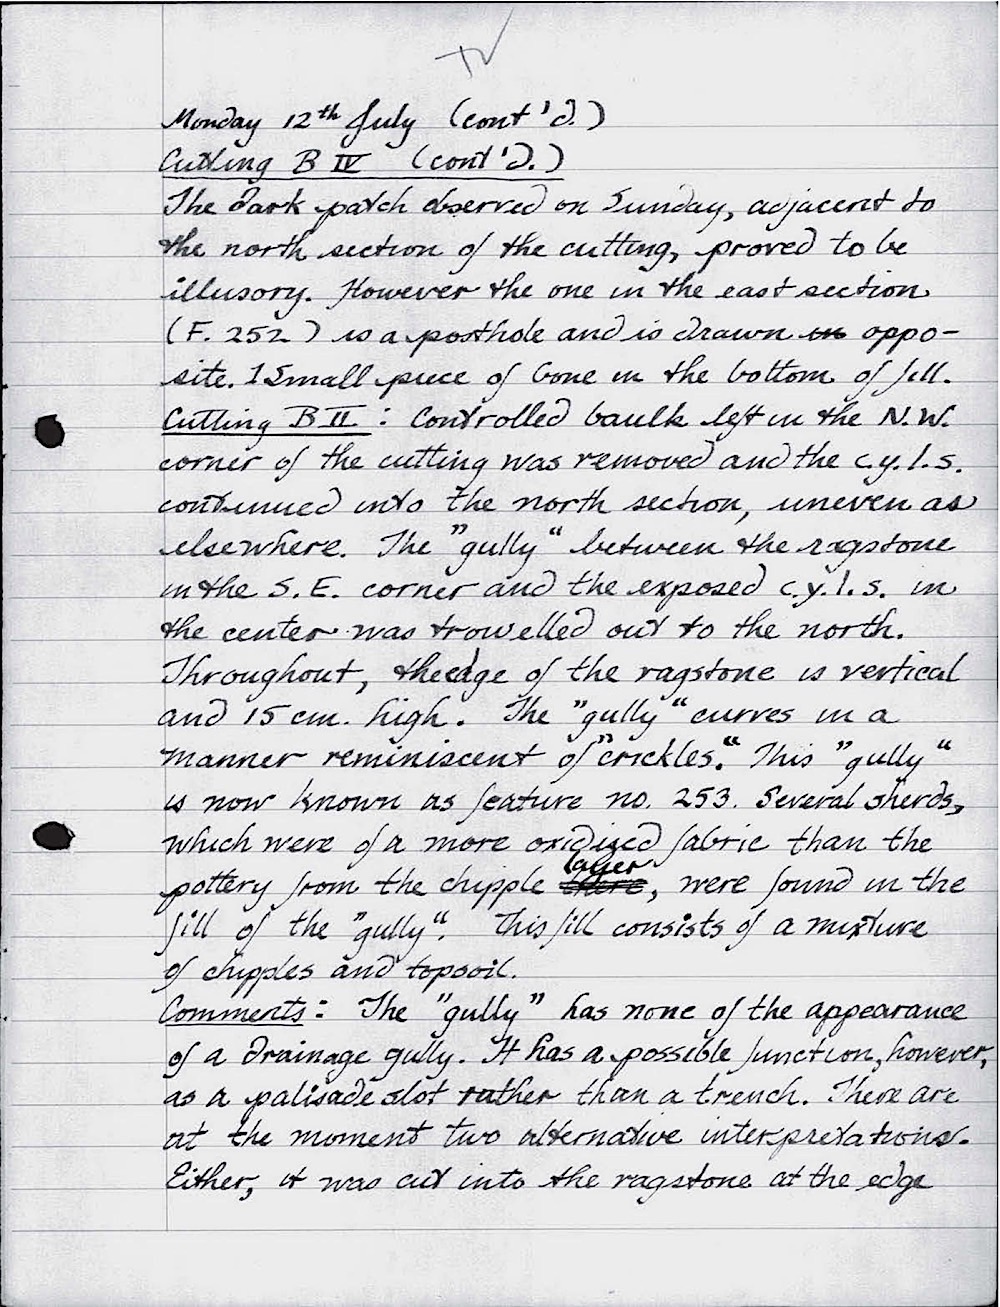 Monday 12th July (cont'd.)
Cutting B IV (cont'd.)
The dark patch observed on Sunday, adjacent to
the north section of the cutting, proved to be
illusory. However the one in the east section
(F. 252) is a posthole and is drawn in oppo-
site. 1 Small piece of bone in the bottom of fill.
Cutting B II : Controlled baulk left in the N.W.
corner of the cutting was removed and the c.y.l.s.
continued into the north section, uneven as
elsewhere. The "gully" between the ragstone
in the S.E. corner and the exposed c.y.l.s. in
the center was trowelled out to the north.
Throughout, the edge of the ragstone is vertical
and 15 cm. high. The "gully" curves in a
manner reminiscent of "crickles." This "gully"
is now known as feature no. 253. Several sherds,
which were of a more oxidized fabric than the
pottery from the chipple layer, were found in the
fill of the "gully". This fill consists of a mixture
of chipples and topsoil.
Comments: The "gully" has none of the appearance
of a drainage gully. It has a possible function, however,
as a palisade slot rather than a trench. There are
at the moment two alternative interpretations.
Either, it was cut into the ragstone at the edge